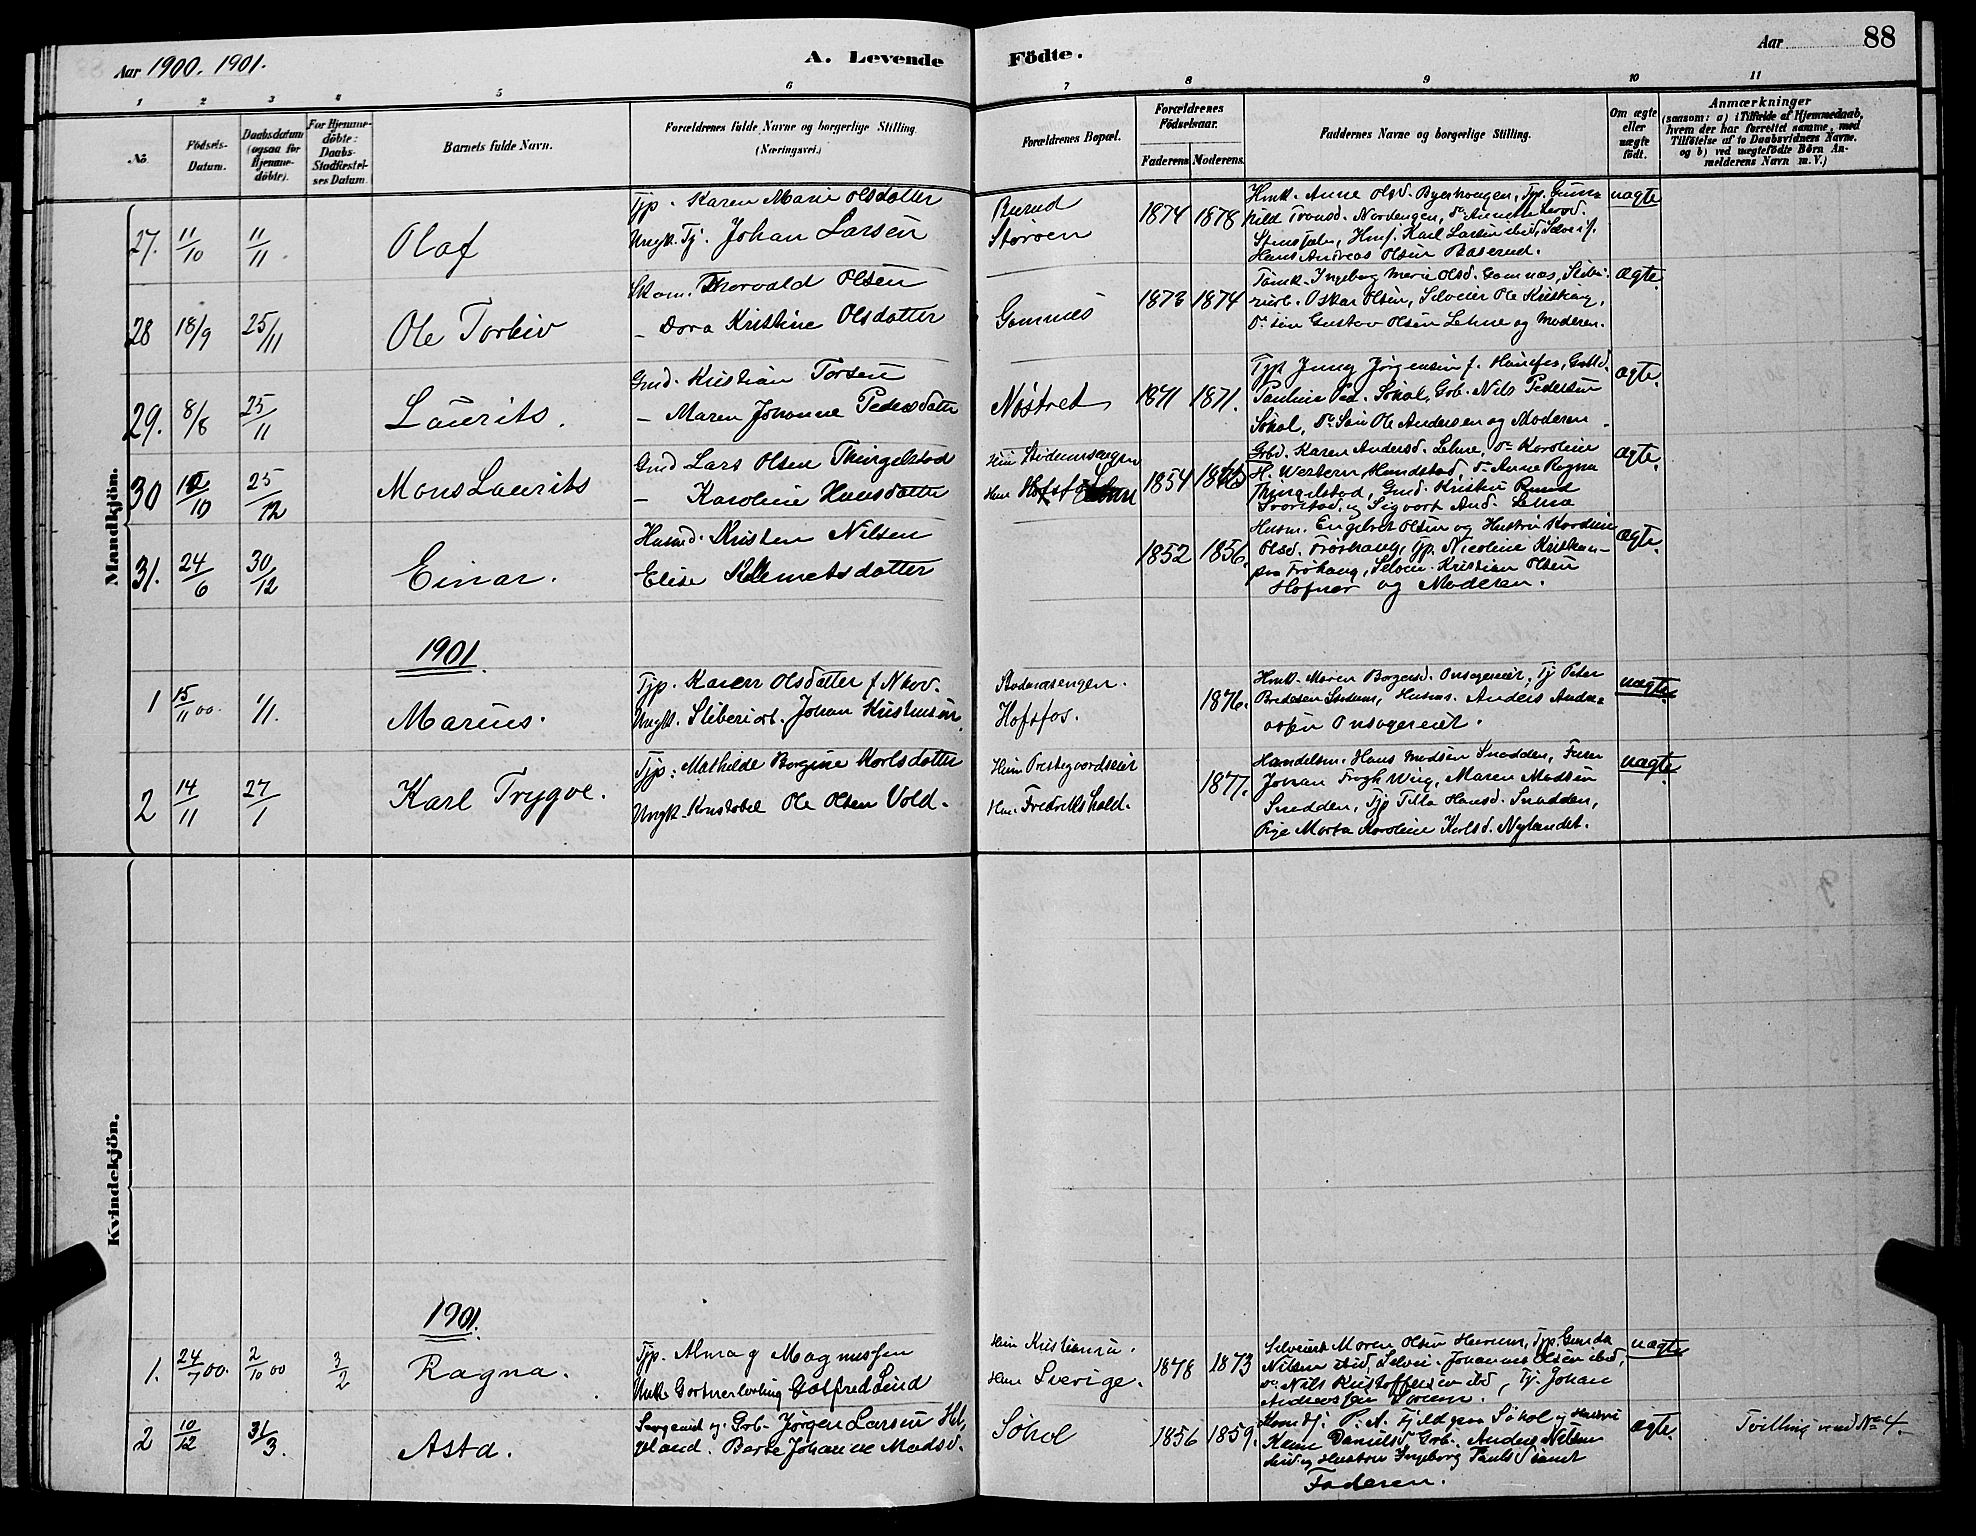 Aar 1900. 1901.
A. Levende Födte.
Aar 88
1 2 3 4 5 6 7 8 9 10 11
No
Födsels-Datum.
Daabsdatum (ogsaa for Hjemme-döbte).
For Hjemme-döbte: Daabs-Stadfestel-ses Datum.
Barnets fulde Navn.
Forældrenes fulde Navne og borgerlige Stilling. (Næringsvei.)
Forældrenes Bopæl.
Forældrenes Födselsaar.
Faderens Moderens.
Faddernes Navne og borgerlige Stilling.
Om ægte eller uægte födt.
Anmærkninger
(saasom: a) i Tilfælde af Hjemmedaab,
hvem der har forrettet samme, med
Tilföielse af to Daabsvidners Navne.
og b) ved uægtefödte Börn An-
melderens Navn m. V.)
Mandkjön.
27. 11/10 11/11. Olaf
Tjp. Karen Marie Olsdatter
Ungk. Tj. Johan Larsen
Burud
Storøen
1874 1878
Hmk. Anne Olsd. Tjp.
hild Nordengen,
Hmf. Karl Larsen
Hans Andreas Olsen
uægte
28 18/9 25/11 Ole Torleiv
Thorvald Olsen
- Dora Kristine Olsdatter
Gomnes
1873 1874
Ingeborg Marie Olsd. Gomnæs,
Oskar Olsen, Selveier Ole
Gustav Olsen Lehne og Moderen.
ægte.
29. 8/8 25/11 Laurits.
Gmd. Kristian Torsen
- Maren Johanne Pedersdatter
Nøstret
1871 1871.
Tjp. Jenny Jørgensen f. Hønefos,
Pauline Ped. Søhol, Grb. Nils Pedersen
Søhol, Ole Andersen og Moderen.
ægte.
30 10 25/12 Mons Laurits
Gmd Lars Olsen Thingelstad
- Karoline Hansdatter
Hun
1854
Grbd. Karen Andersd. Lehne, Do Karoline
H. Western Anne Ragna
Thingelstad, Gmd. Kristen Rund
og Sigvart And. Lehne
ægte.
31. 24/6 30/12 Einar.
Husmd. Kristen Nilsen
Elise Klemetsdatter
1852 1856.
Husm. Engebret Olsen og Hustru Karoline
Olsd. Frøshaug, Tjp. Nicoline
Frøhaug, Selvei. Kristian Olsen
og Moderen.
ægte.
1901.
1 15/11 00. 1/1. Marius.
Tjp. Karen Olsdatter f.
Ungk. Sliberiarb. Johan Kristensen.
Hofsfos.
1876.
Hmk. Maren Borgersd. Onsagereiet, Tj Peter
Bredesen Husms. Anders
Onsagereiet.
uægte
2 14/11 27/1 Karl Trygve.
Tjp: Mathilde Borgine Karlsdatter
Ungk. Konstabel Ole Olsen Vold.
Hun Prestegaardseiet
Han Fredrikshald.
1877.
Handelsm. Hans Madsen Snadden,
Johan Maren Madsen
Snadden, Tjp Hansd. Snadden,
Pige Marta Karoline Karlsd. Nylandet.
uægte
Kvindekjön.
1901.
1. 24/7 00. 2/10 00 3/2 Ragna.
Tjp. Magnussen
Gartnerlærling Gotfred Lind
Hun Kristiania.
Han Sverige.
1878 1873
Maren Olsen Tjp. Gunda
Nilsen ibid, Selvei. Johannes Olsen ibid,
Do Nils Kristoffersen ibd, Tj. Johan
Andreassen
uægte
2 10/12 31/3. Asta.
Sergeant og Grb. Jørgen Larsen Hel-
geland. Berte Johanne Madsd.
Søhol
1856 1859.
P. A. Søhol og Hustru
Karen Danielsd Grb. Anders Nilsen
og Hustru Ingeborg samt
Faderen.
ægte.
Tvilling med No 4.